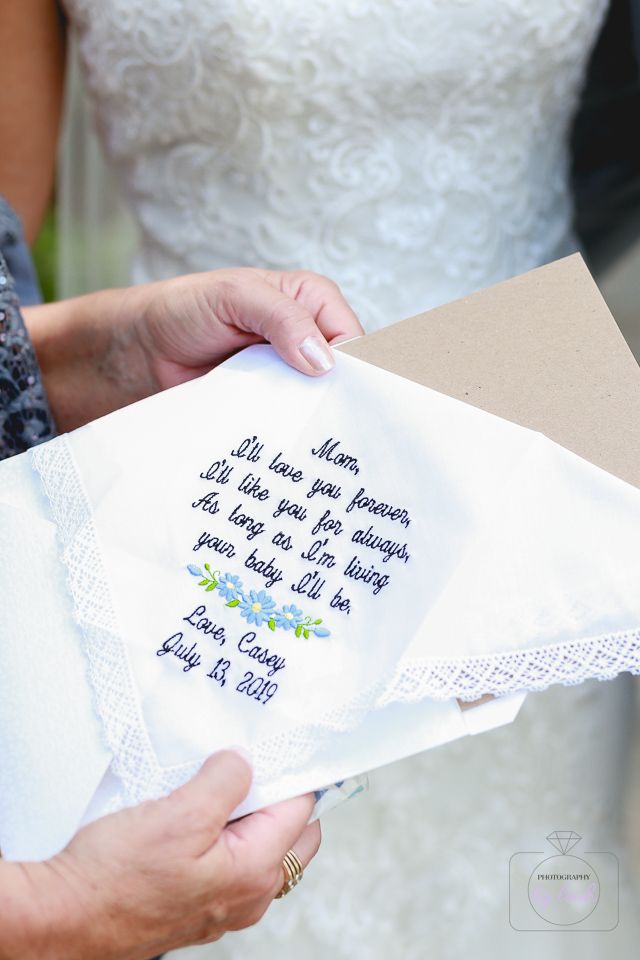 Mom,
I'll love you forever,
I'll like you for always,
As long as I'm living
your baby I'll be.
Love, Casey
July 13, 2019
PHOTOGRAPHY